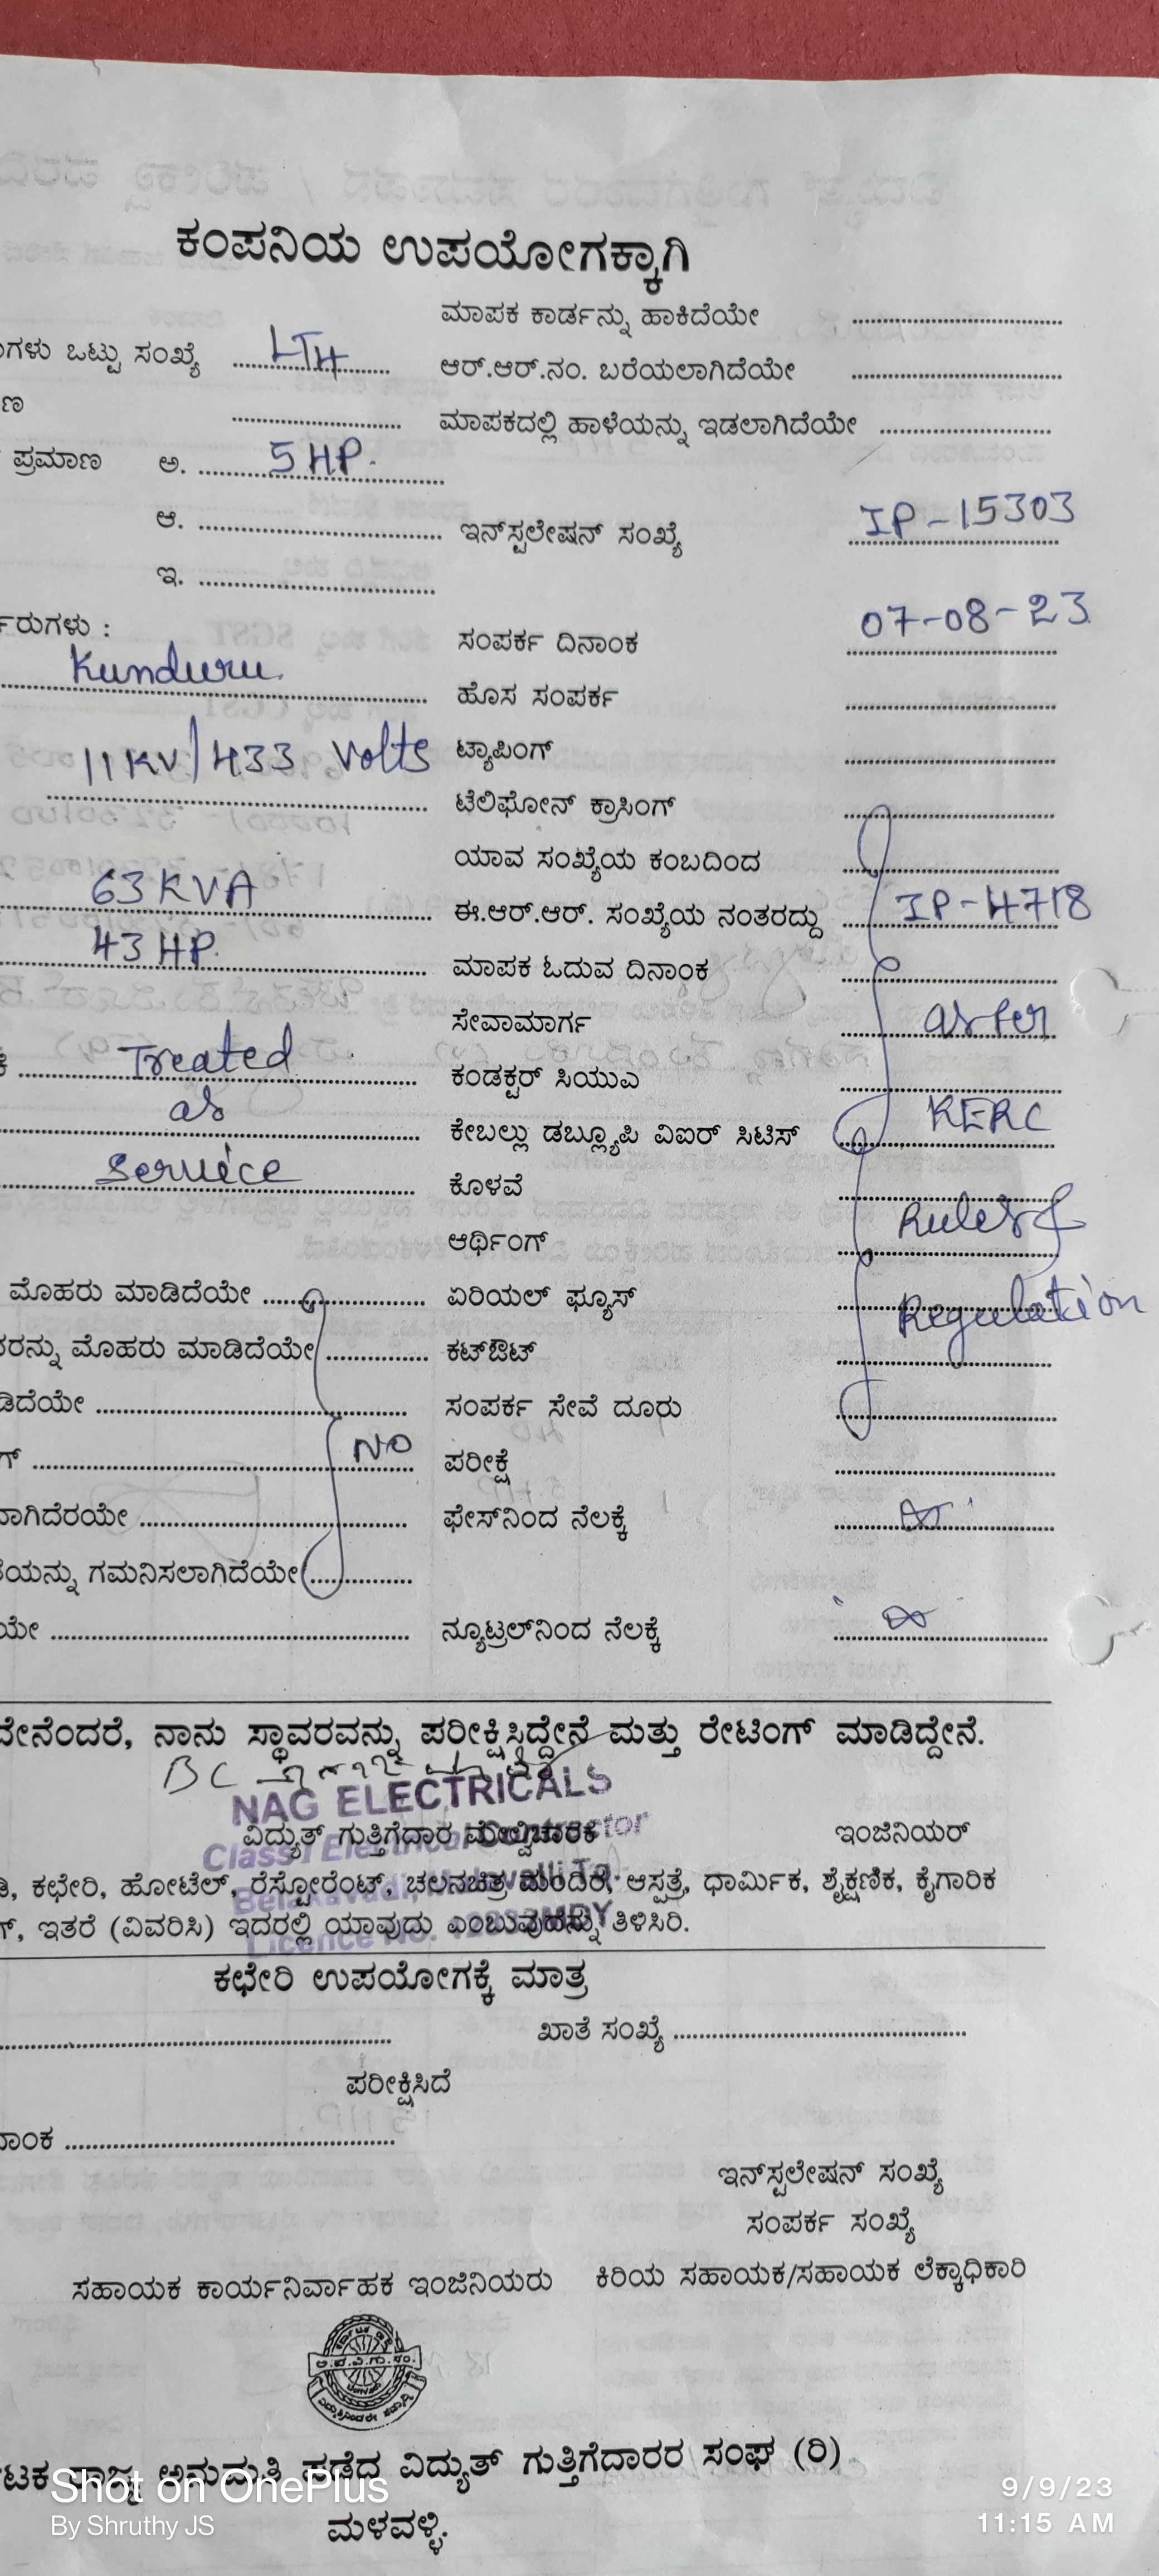 ಕಂಪನಿಯ ಉಪಯೋಗಕ್ಕಾಗಿ
ಮಾಪಕ ಕಾರ್ಡನ್ನು ಹಾಕಿದೆಯೇ
ಗಳು ಒಟ್ಟು ಸಂಖ್ಯೆ LT4 ಆರ್.ಆರ್.ನಂ. ಬರೆಯಲಾಗಿದೆಯೇ
ಣ ಮಾಪಕದಲ್ಲಿ ಹಾಳೆಯನ್ನು ಇಡಲಾಗಿದೆಯೇ
ಪ್ರಮಾಣ ಅ. 5 HP.
ಆ. ಇನ್‌ಸ್ಟಲೇಷನ್ ಸಂಖ್ಯೆ IP-15303
ಇ.
ರುಗಳು : ಸಂಪರ್ಕ ದಿನಾಂಕ 07-08-23
Kunduru. ಹೊಸ ಸಂಪರ್ಕ
11KV/433 Volts ಟ್ಯಾಪಿಂಗ್
ಟೆಲಿಫೋನ್ ಕ್ರಾಸಿಂಗ್
ಯಾವ ಸಂಖ್ಯೆಯ ಕಂಬದಿಂದ
63 KVA ಈ.ಆರ್.ಆರ್. ಸಂಖ್ಯೆಯ ನಂತರದ್ದು IP-4718
43 HP. ಮಾಪಕ ಓದುವ ದಿನಾಂಕ
ಸೇವಾಮಾರ್ಗ as per
Treated ಕಂಡಕ್ಟರ್ ಸಿಯುಎ
as ಕೇಬಲ್ಲು ಡಬ್ಲ್ಯೂಪಿ ವಿಐರ್ ಸಿಟಿಸ್ KERC
service ಕೊಳವೆ
ಆರ್ಥಿಂಗ್ Rules &
ಮೊಹರು ಮಾಡಿದೆಯೇ ಏರಿಯಲ್ ಫ್ಯೂಸ್ Regulation
ರನ್ನು ಮೊಹರು ಮಾಡಿದೆಯೇ ಕಟ್‌ಔಟ್
ಡಿದೆಯೇ ಸಂಪರ್ಕ ಸೇವೆ ದೂರು
ಗ್ NO ಪರೀಕ್ಷೆ
ವಾಗಿದೆರಯೇ ಫೇಸ್‌ನಿಂದ ನೆಲಕ್ಕೆ
ಯನ್ನು ಗಮನಿಸಲಾಗಿದೆಯೇ
ಯೇ ನ್ಯೂಟ್ರಲ್‌ನಿಂದ ನೆಲಕ್ಕೆ
ದೇನೆಂದರೆ, ನಾನು ಸ್ಥಾವರವನ್ನು ಪರೀಕ್ಷಿಸಿದ್ದೇನೆ ಮತ್ತು ರೇಟಿಂಗ್ ಮಾಡಿದ್ದೇನೆ.
NAG ELECTRICALS
ವಿದ್ಯುತ್ ಗುತ್ತಿಗೆದಾರ ಮೇಲ್ವಿಚಾರಕ ಇಂಜಿನಿಯರ್
Class I Electrical Contractor
ಕಛೇರಿ, ಹೋಟೆಲ್, ರೆಸ್ಟೋರೆಂಟ್, ಚಲನಚಿತ್ರ ಮಂದಿರ, ಆಸ್ಪತ್ರೆ, ಧಾರ್ಮಿಕ, ಶೈಕ್ಷಣಿಕ, ಕೈಗಾರಿಕ
ಗ್, ಇತರೆ (ವಿವರಿಸಿ) ಇದರಲ್ಲಿ ಯಾವುದು ಎಂಬುವುದನ್ನು ತಿಳಿಸಿರಿ.
Licence No.
ಕಛೇರಿ ಉಪಯೋಗಕ್ಕೆ ಮಾತ್ರ
ಖಾತೆ ಸಂಖ್ಯೆ
ಪರೀಕ್ಷಿಸಿದೆ
ನಾಂಕ
ಇನ್‌ಸ್ಟಲೇಷನ್ ಸಂಖ್ಯೆ
ಸಂಪರ್ಕ ಸಂಖ್ಯೆ
ಸಹಾಯಕ ಕಾರ್ಯನಿರ್ವಾಹಕ ಇಂಜಿನಿಯರು ಕಿರಿಯ ಸಹಾಯಕ/ಸಹಾಯಕ ಲೆಕ್ಕಾಧಿಕಾರಿ
ಟಕ ರಾಜ್ಯ ಅನುಮತಿ ಪಡೆದ ವಿದ್ಯುತ್ ಗುತ್ತಿಗೆದಾರರ ಸಂಘ (ರಿ)
ಮಳವಳ್ಳಿ.
Shot on OnePlus
By Shruthy JS
9/9/23
11:15 AM